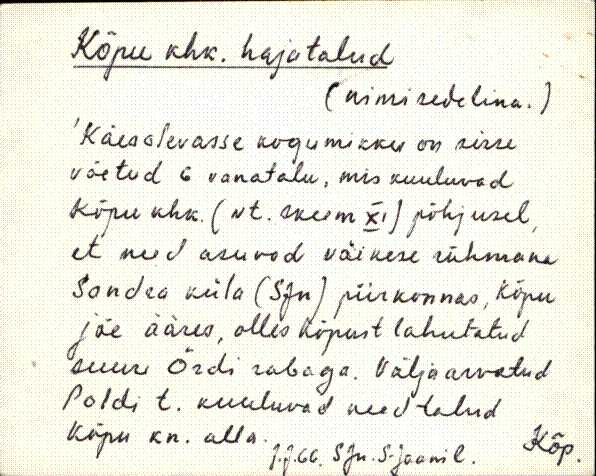 Kõpu khk. hajatalud
(nimisedelina.)
Käesolevasse kogumikku on sisse
võetud 6 vanatalu, mis kuuluvad
Kõpu khk. (vt. skeem XI) põhjusel,
et need asuvad väikese rühmana
Sandra küla (SJn) piirkonnas, Kõpu
jõe ääres, olles Kõpust lahutatud
suure Ördi rabaga. Väljaarvatud
Poldi t. kuuluvad need talud
Kõpu kn. alla.
J.J.66. SJn. S. Jaanil.
Kõp.